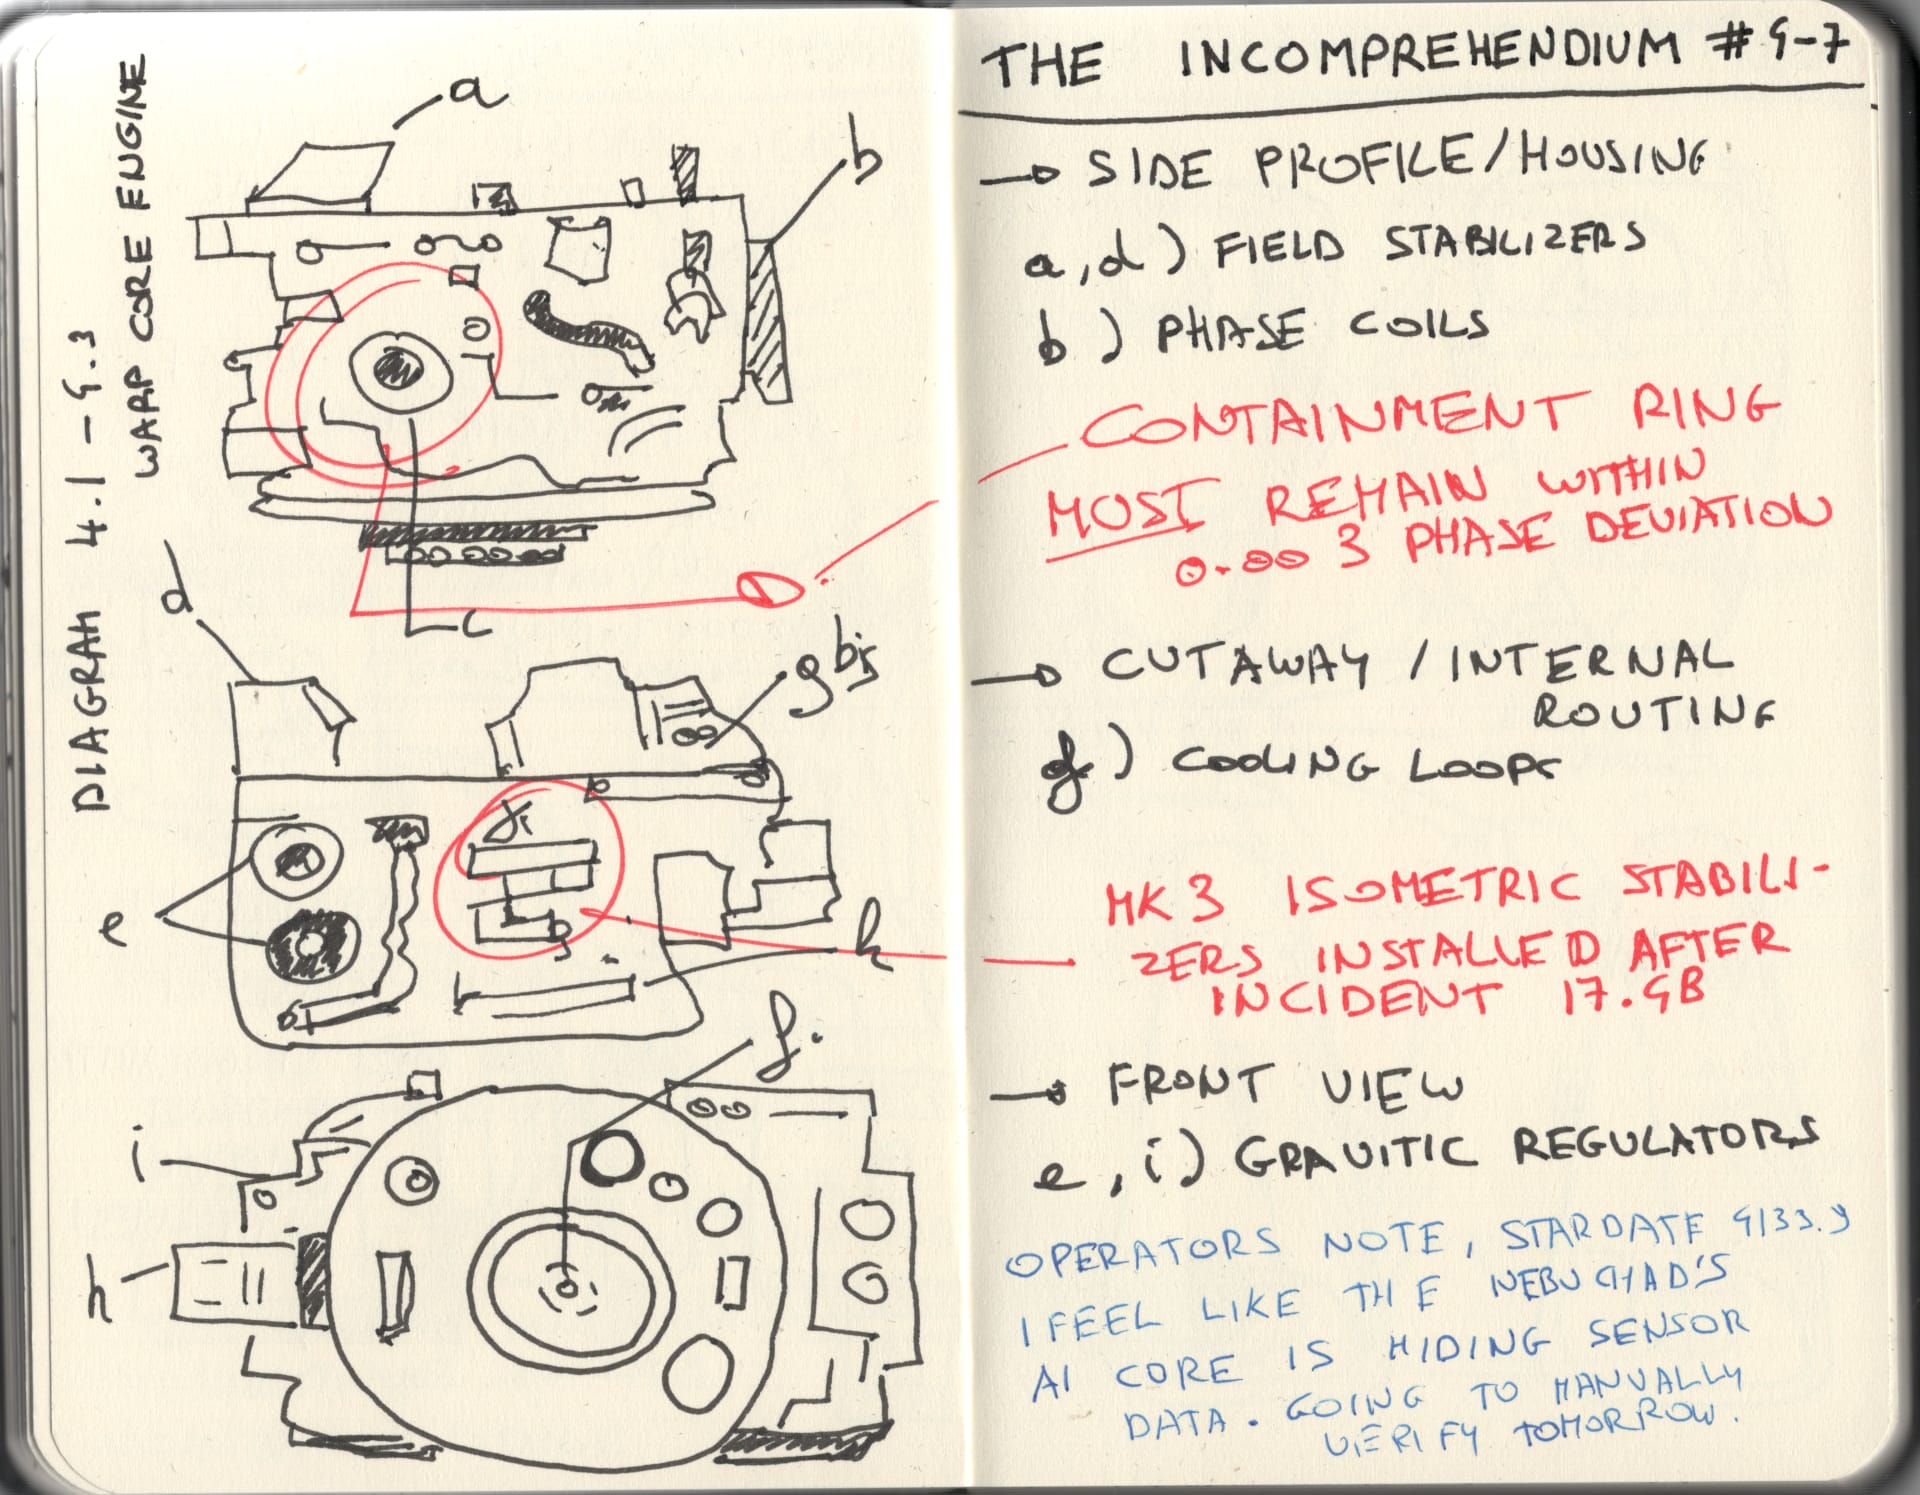 DIAGRAM 4.1 – 4.3
WARP CORE ENGINE
a
b
c
d
g bis
e
h
f.
i
h
THE INCOMPREHENDIUM # 4-7
→ SIDE PROFILE/HOUSING
a, d) FIELD STABILIZERS
b) PHASE COILS
CONTAINMENT RING
MUST REMAIN WITHIN
0.003 PHASE DEVIATION
→ CUTAWAY / INTERNAL
ROUTING
g) COOLING LOOPS
MK3 ISOMETRIC STABILI-
ZERS INSTALLED AFTER
INCIDENT 17.4B
→ FRONT VIEW
e, i) GRAVITIC REGULATORS
OPERATORS NOTE, STARDATE 4133.9
I FEEL LIKE THE NEBUCHAD'S
AI CORE IS HIDING SENSOR
DATA. GOING TO MANUALLY
VERIFY TOMORROW.